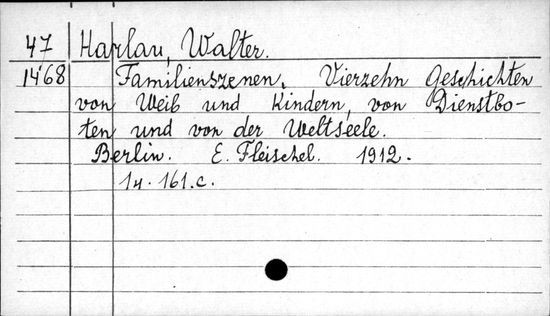 47 Harlau, Walter.
1468 Familienszenen. Vierzehn Geschichten
von Weib und Kindern, von Dienstbo-
ten und von der Weltseele.
Berlin. E. Fleischel. 1912.
1н. 161.c.